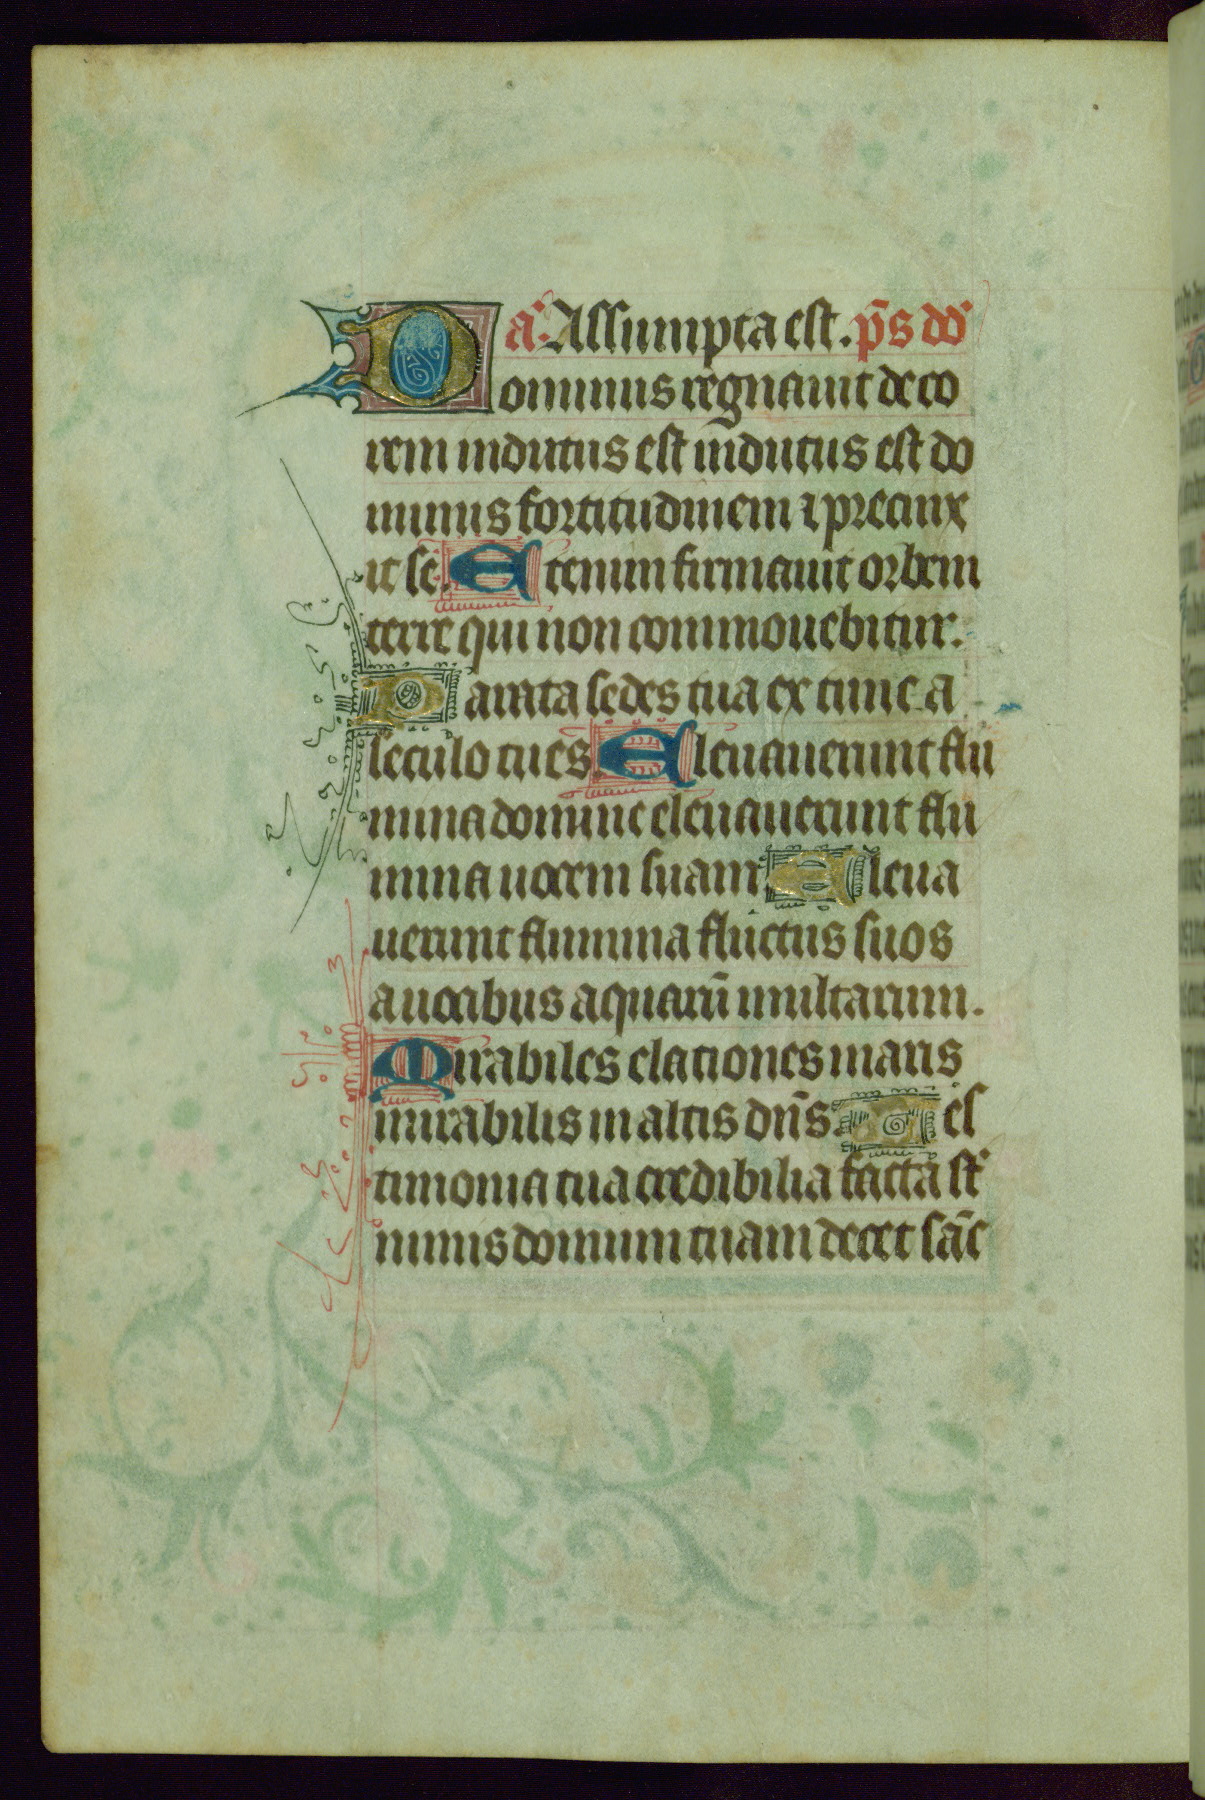 a̅. Assumpta est. p̅s do̅
Dominus regnauit deco
rem indutus est indutus est do
minus fortitudinem ⁊ precinx
it se. Etenim firmauit orbem
terre qui non commouebitur.
Parata sedes tua ex tunc a
seculo tu es. Eleuauerunt flu
mina domine eleuauerunt flu
mina uocem suam Eleua
uerunt flumina fluctus suos
a uocibus aquaru̅ multarum.
Mirabiles elationes maris
mirabilis in altis dn̅s. Tes
timonia tua credibilia facta st̅
nimis domum tuam decet sa̅c